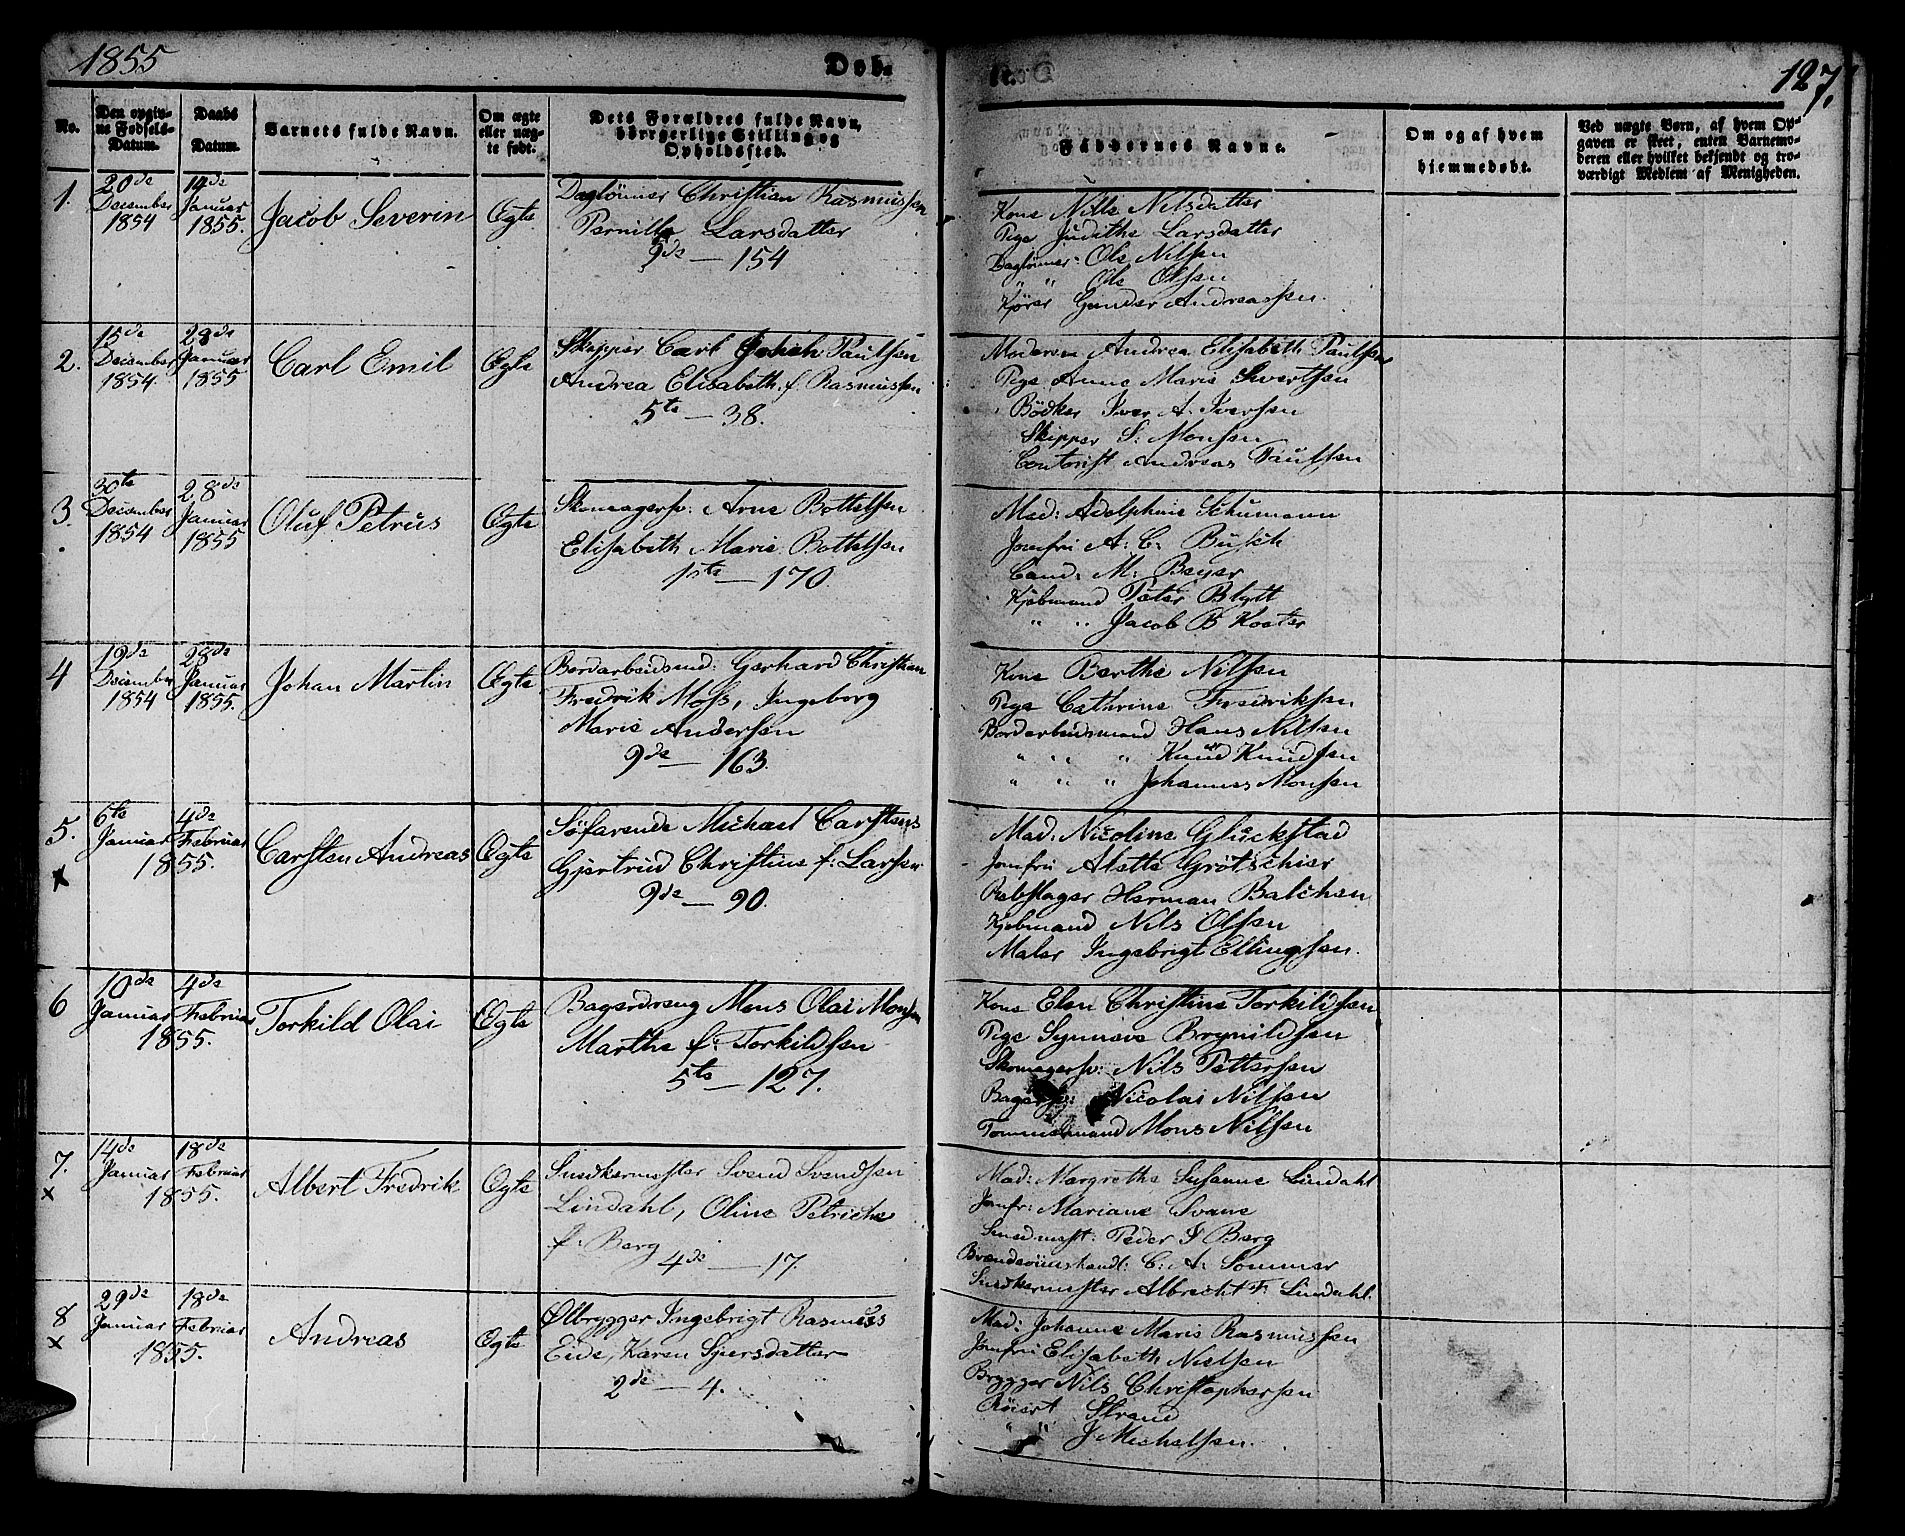 1855
Døb.
127.
No.
Den opgiv-
ne Fødsels-
Datum.
Daabs
Datum.
Barnets fulde Navn.
Om ægte
eller uæg-
te født.
Dets Forældres fulde Navn,
borgerlige Stilling og
Opholdssted.
Faddernes Navne.
Om og af hvem
hjemmedøbt.
Ved uægte Børn, af hvem Op-
gaven er skeet, enten Barnemo-
deren eller hvilket bekjendt og tro-
værdigt Medlem af Menigheden.
1.
20de
December
1854
14de
Januar
1855.
Jacob Severin
Ægte
Daglönner Christian Rasmussen
Pernille Larsdatter
9de — 154
Kone Nille Nilsdatter
Pige Judithe Larsdatter
Daglönner Ole Nilsen
" " Ole Olsen
Kjörer Gunder Andreassen.
2.
15de
December
1854.
28de
Januar
1855
Carl Emil
Ægte
Skipper Carl Paulsen
Andrea Elisabeth f. Rasmussen
5te — 38.
Moderen Andrea Elisabeth Paulsen
Pige Anne Marie Sivertsen
Bödker Iver A. Iversen
Skipper S: Monsen
Contorist Andreas Paulsen
3.
30te
December
1854
28de
Januar
1855
Oluf Petrus
Ægte
Skomagersv: Arne Bottelsen
Elisabeth Marie Bottelsen
1ste — 170.
Mad: Adolphine Schumann
Jomfru A: C: Busch
Cand: M: Beyer
Kjöbmand Peter Blytt
" " Jacob B Koster
4
19de
December
1854
28de
Januar
1855.
Johan Martin
Ægte
Bordarbeidsmd: Gerhard Christian
Fredrik Moss, Ingeborg
Marie Andersen
9de — 163.
Kone Berthe Nilsen
Pige Cathrine Fredriksen
Bordarbeidsmand Hans Nilsen
" " " Knud Knudsen
" " " Johannes Monsen
5.
x
6te
Januar
4de
Februar
1855.
Carsten Andreas
Ægte
Söfarende Michael Carstens
Gjertrud Christine f: Larsen
9de — 90.
Mad: Nicoline Glückstad
Jomfru Alette Grötschier
Rebslager Herman Balchen
Kjöbmand Nils Olsen
Maler Ingebrigt Ellingsen.
6
10de
Januar
4de
Februar
1855.
Torkild Olai
Ægte
Bagerdreng Mons Olai Monsen
Marthe f: Torkildsen
5te — 127.
Kone Elen Christine Torkildsen
Pige Synneve Brynildsen
Skomagersv: Nils Pettersen
Bagersv: Nicolai Nilsen
Tømmermand Mons Nilsen
7.
x
14de
Januar
18de
Februar
1855.
Albert Fredrik
Ægte
Snedkermester Svend Svendsen
Lindahl, Oline Petriche
f: Berg
4de — 17.
Mad: Margrethe Susanne Lindahl
Jomfr: Mariane Svane
Snedmest: Peder J Berg
Brændeviinshandl: C: A: Sommer
Snedkermester Albrecht F. Lindahl.
8
x
29de
Januar
18de
Februar
1855.
Andreas
Ægte
Ølbrygger Ingebrigt Rasmus
Eide, Karen Sjursdatter
2de — 4.
Mad: Johanne Marie Rasmussen
Jomfru Elisabeth Nielsen
Brygger Nils Christophersen
Strand
" " J Michelsen.